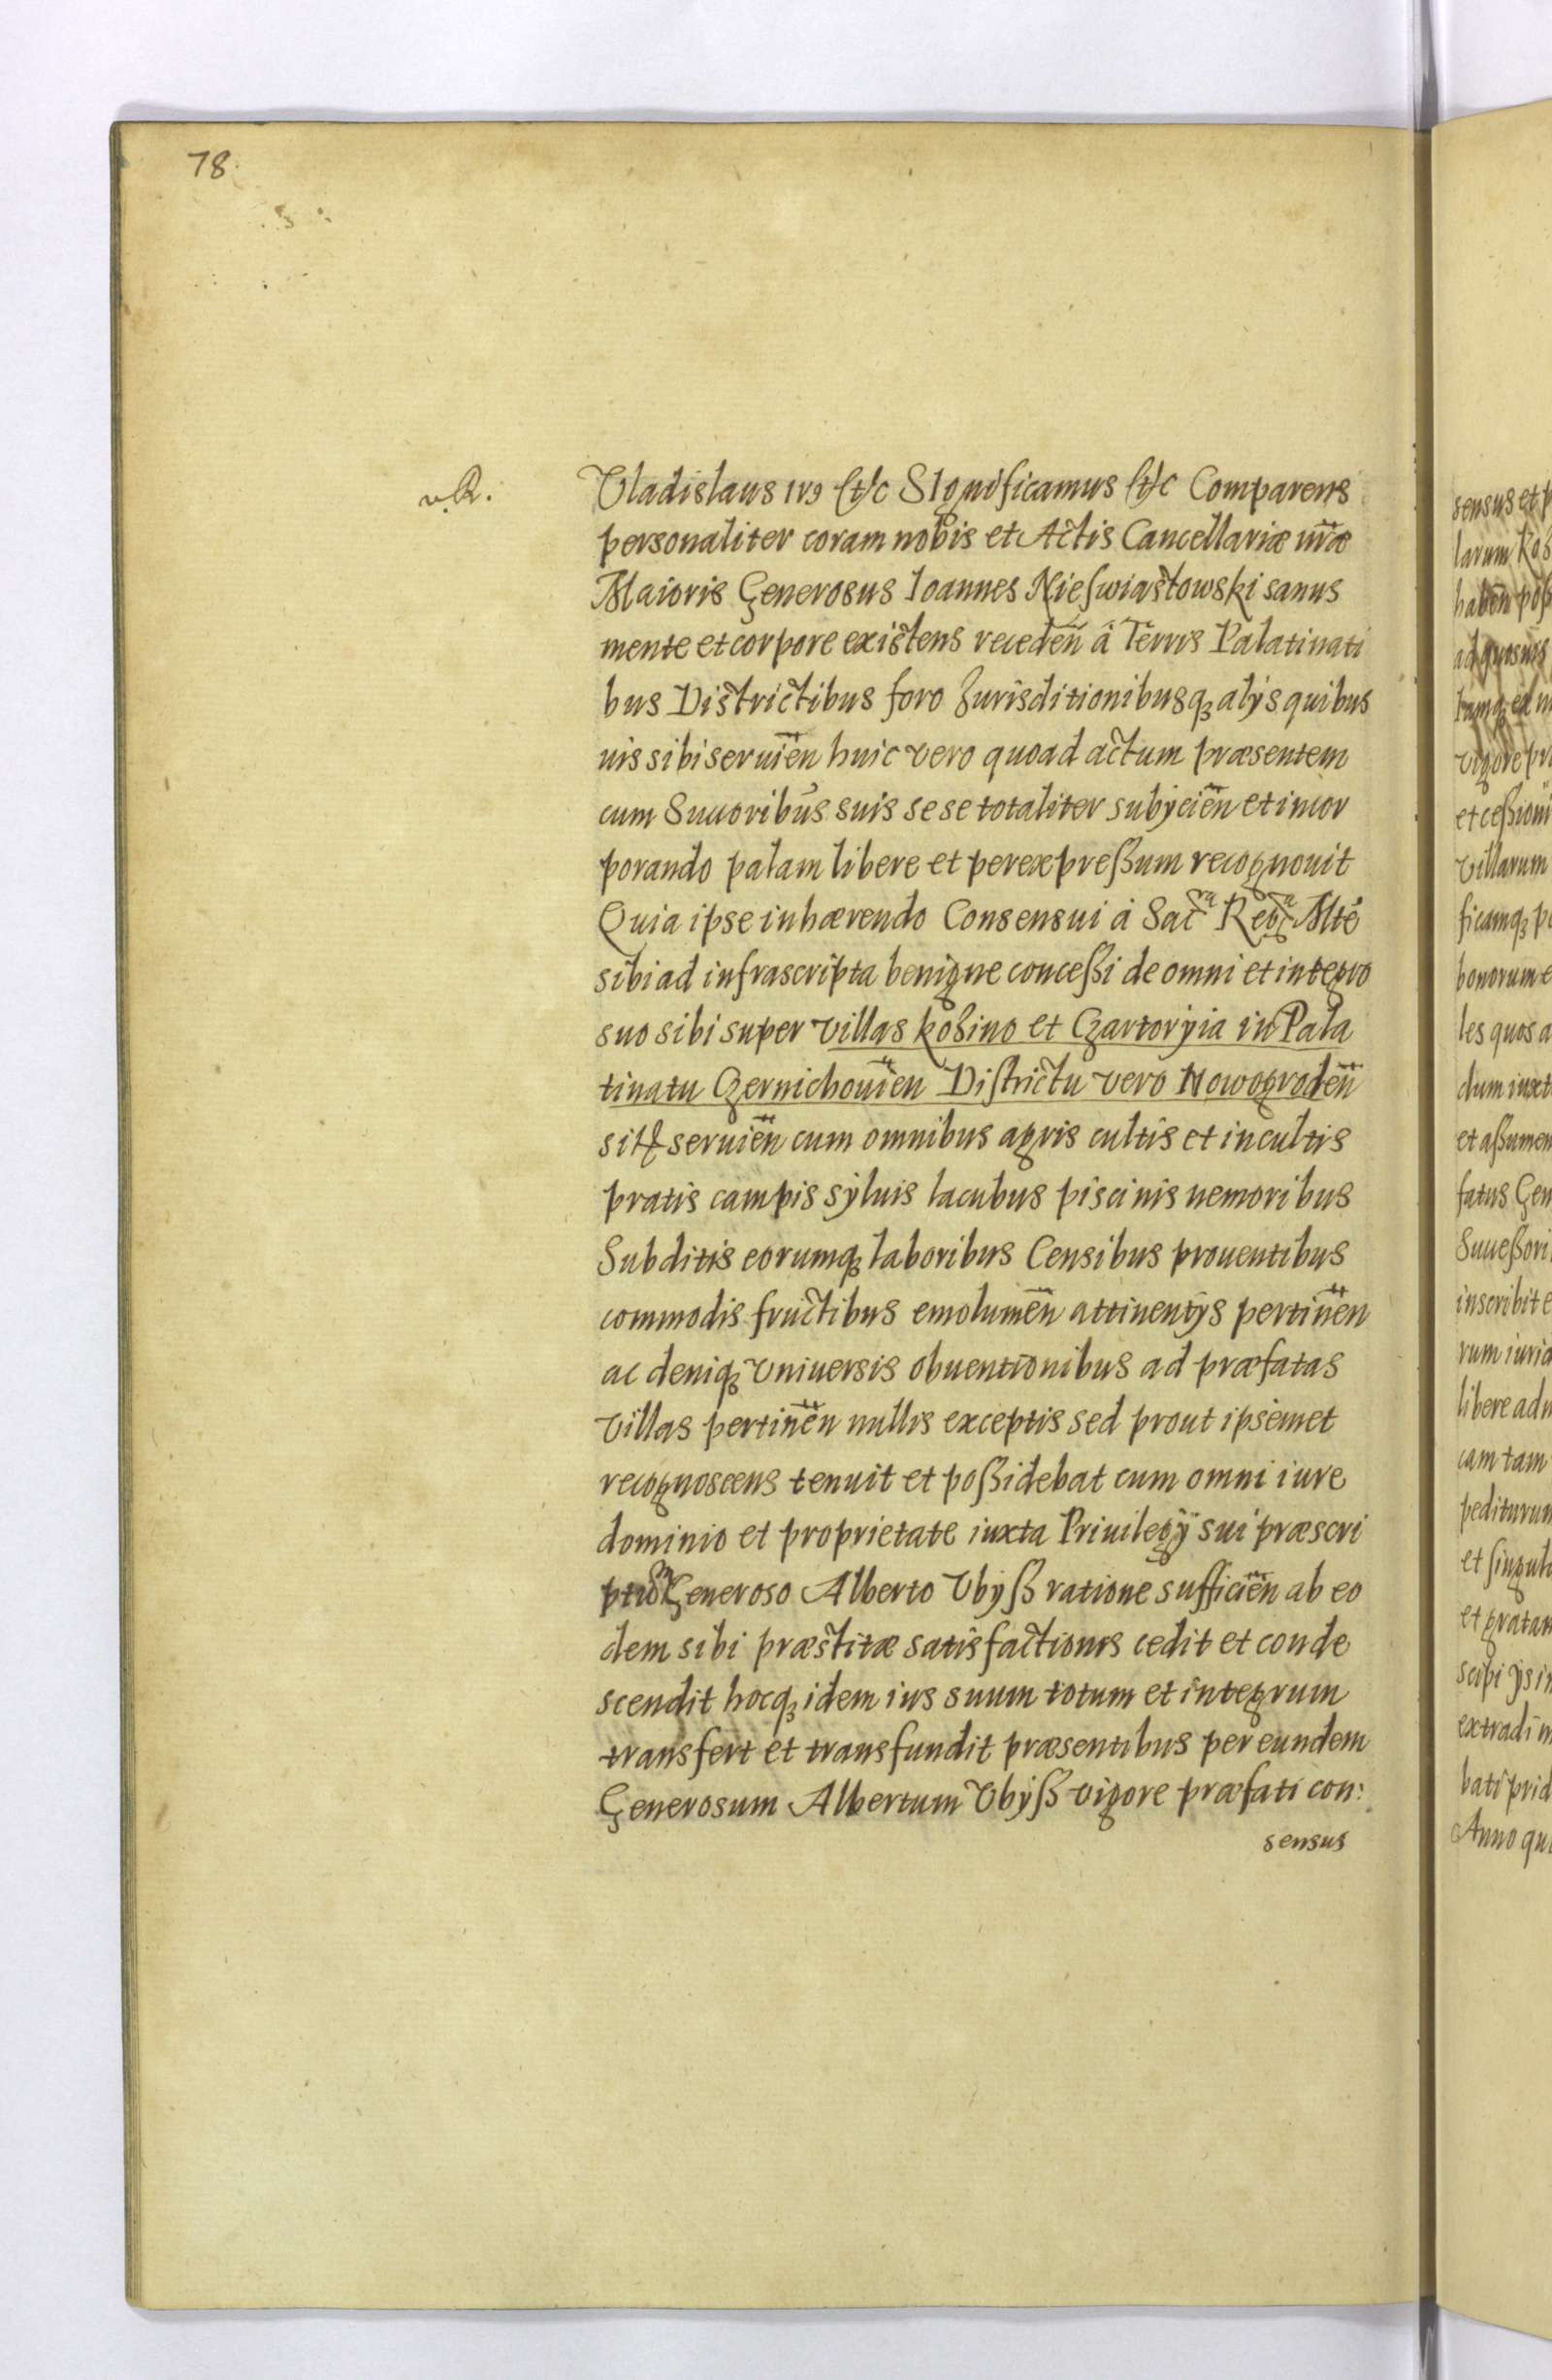 78
v. R.
Vladislaus IV9 &c Significamus &c Comparens
personaliter coram nobis et Actis Cancellariæ nr̃æ
Maioris Generosus Ioannes Nieſwiastowski sanus
mente et corpore existens receden̄ â Terris Palatinati
bus Districtibus foro Iurisditionibusqȝ alÿs quibus
uis sibi seruien̄ huic vero quoad actum præsentem
cum Succoribus suis se se totaliter subÿcien̄ et incor
porando palam libere et per expreßum recognouit
Quia ipse inhærendo Consensui â Sacra Regia Mtẽ
sibi ad infrascripta benigne conceßi de omni et integro
suo sibi super villas Kosino et Czartoryia in Pala
tinatu Czernichouien̄ Diſtrictu vero Nowogroden̄
sitꝭ seruien̄ cum omnibus agris cultis et incultis
pratis campis sÿluis lacubus piscinis nemoribus
Subditis eorumqȝ laboribus Censibus prouentibus
commodis fructibus emolumen̄ attinentÿs pertinen̄
ac deniqȝ vniuersis obuentionibus ad præfatas
villas pertinen̄ nullis exceptis sed prout ipsèmet
recognoscens tenuit et poßidebat cum omni iure
dominio et proprietate iuxta Priuilegÿ sui præscri
ption Generoso Alberto Vbÿß ratione sufficien̄ ab eo
dem sibi præstitæ satisfactionis cedit et conde
scendit hocqȝ idem ius suum totum et integrum
transfert et transfundit præsentibus per eundem
Generosum Albertum Vbÿß vigore præfati con:
sensus
sensus et p
larum Kos
haben̄ poß
ad quosuis
tumqȝ ea m
vigore pr
et ceßioni
villarum
ficamqȝ p
bonorum e
les quos a
dum iuxt
et aßumen
fatus Gen
Succeßori
inscribit e
rum iuria
libere adm
cam tam
pediturum
et ſingul
et gratam
scipi ÿs in
extradi m
bati prid
Anno qu